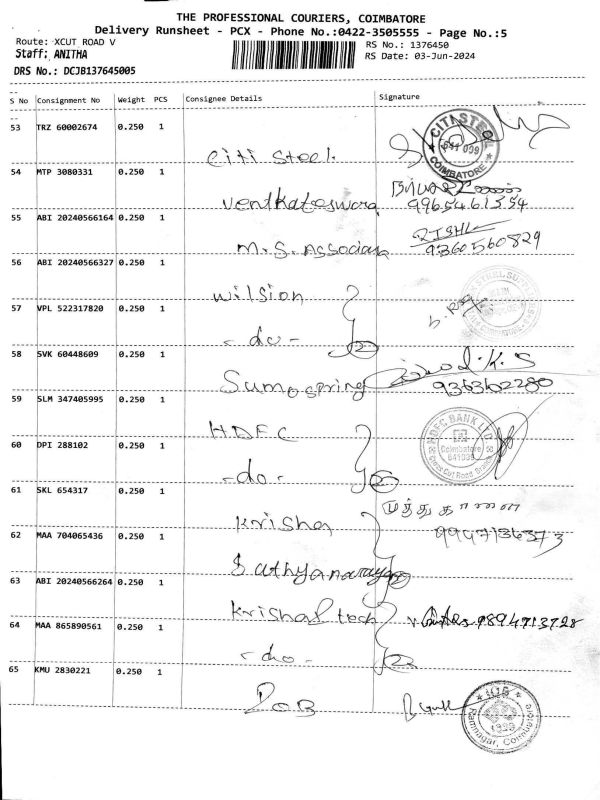 THE PROFESSIONAL COURIERS, COIMBATORE
Delivery Runsheet - PCX - Phone No.:0422-3505555 - Page No.:5
Route: XCUT ROAD V
RS No.: 1376450
Staff: ANITHA
RS Date: 03-Jun-2024
DRS No.: DCJB137645005
S No Consignment No Weight PCS Consignee Details Signature
53 TRZ 60002674 0.250 1
Citi Steel
CITI STEEL 641 009 COIMBATORE
54 MTP 3080331 0.250 1
Venkateswara
9965461354
55 ABI 20240566164 0.250 1
M.S. Associa
9360560829
56 ABI 20240566327 0.250 1
Wilsion
57 VPL 522317820 0.250 1
-do- 2
58 SVK 60448609 0.250 1
Sumospring
936362280
59 SLM 347405995 0.250 1
HDFC
HDFC BANK LTD Coimbatore 641009
60 DPI 288102 0.250 1
-do- 2
61 SKL 654317 0.250 1
Krisha
முத்து காளை
62 MAA 704065436 0.250 1
Sathyanaraya 2
63 ABI 20240566264 0.250 1
Krishaf tech
9894713728
64 MAA 865890561 0.250 1
-do- 2
65 KMU 2830221 0.250 1
IOB
Ramnagar, Coimbatore